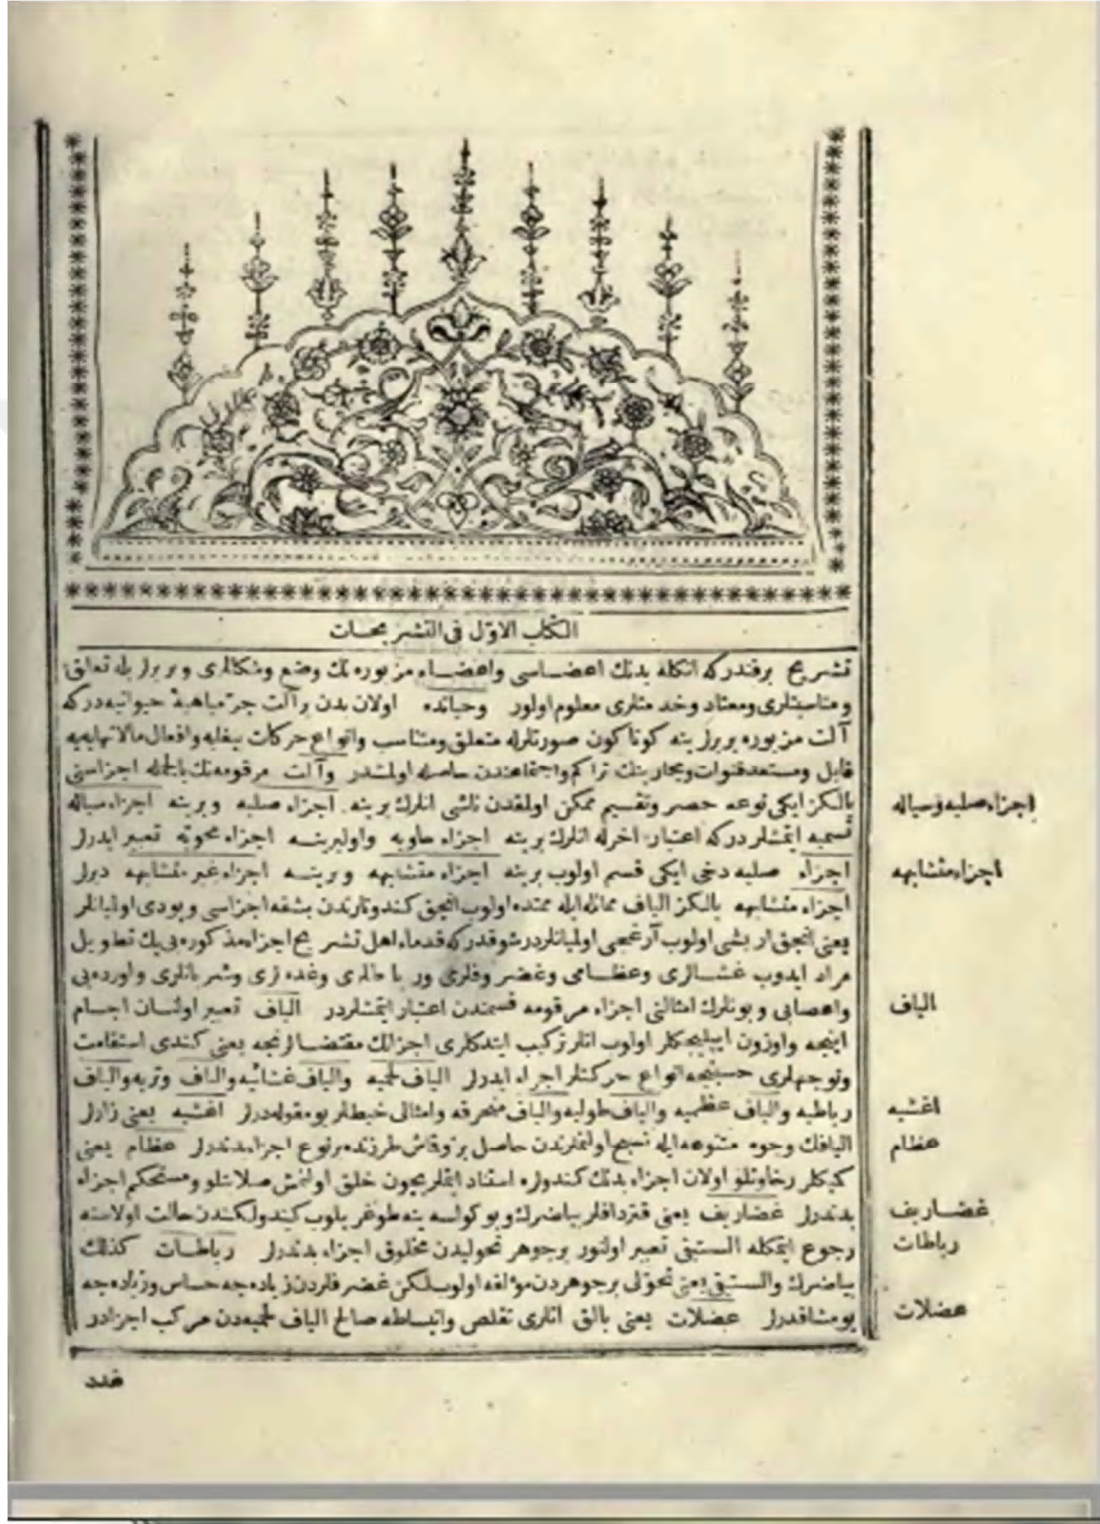 الكتاب الاول فى التشريحات
تشريح برفندركه انكله بدنك اعضاسى واعضاء مزبوره نك وضع وشكللرى وبربرلريله تعلق
ومناسبتلرى ومعتاد وخدمتلرى معلوم اولور وحياتده اولان بدن برآلت جرثماهية حيوانيه دركه
آلت مزبوره بربرينه كوناكون صورتلرله متعلق ومتناسب وانواع حركات وافعال مالانهايه يه
قابل ومستعد قنوات ومجارينك تراكم واجتماعندن حاصله اولمشدر وآلت مرقومه نك بالجمله اجزاسنى
يالكز ايكى نوعه حصر وتقسيم ممكن اولمقدن ناشى انلرك برينه اجزاء صلبه وبرينه اجزاء سياله
تسميه ايتمشلردركه اعتبار اخرله انلرك برينه اجزاء حاويه واولبرينه اجزاء محويه تعبير ايدرلر
اجزاء صلبه دخى ايكى قسم اولوب برينه اجزاء متشابهه وبرينه اجزاء غير متشابهه ديرلر
اجزاء متشابهه يالكز الياف مماثله ايله ممتده اولوب انجق كندونلرندن بشقه اجزاسى وپودى اولميانلر
يعنى انجق اريشى اولوب آرغجى اولميانلردر شوقدركه قدماء اهل تشريح اجزاء مذكوره يى پك تطويل
مراد ايدوب غشالرى وعظامى وغضروفلرى ورباطلرى وغده لرى وشريانلرى واورده يى
واعصابى وبونلرك امثالنى اجزاء مرقومه قسمندن اعتبار ايتمشلردر الياف تعبير اولنان اجسام
اينجه واوزون ايپليجكلر اولوب انلر تركيب ايتدكلرى اجزانك مقتضالرنجه يعنى كندى استقامت
وتوجهلرى حسبنجه انواع حركتلر اجراء ايدرلر الياف لحميه والياف غشائيه والياف وتريه والياف
رباطيه والياف عظميه والياف طوليه والياف منحرفه وامثالى خيطلر بومقوله درلر اغشيه يعنى زارلر
اليافك وجوه متنوعه ايله نسيج اولنمه لرندن حاصل بزوقماش طرزنده برنوع اجزاء بدندرلر عظام يعنى
كيكلر رخاوتلو اولان اجزاء بدنك كندولره استناد ايتملريچون خلق اولنمش صلابتلو ومستحكم اجزاء
بدندرلر غضاريف يعنى قتردقلر بياضرك وبوكولسه ينه طوغريلوب كيدولكندن حالت اولاسنه
رجوع ايتمكله الستيقى تعبير اولنور برجوهر تحوليدن مخلوق اجزاء بدندرلر رباطات كذلك
بياضرك والستيقى يعنى تحولى برجوهردن مؤلفه اولوب لكن غضروفلردن زياده جه حساس وزياده جه
يومشاقدرلر عضلات يعنى بالق اتلرى تقلص وانبساطه صالح الياف لحميه دن مركب اجزادر
اجزاء صلبه وسياله
اجزاء متشابهه
الياف
اغشيه
عظام
غضاريف
رباطات
عضلات
غدد